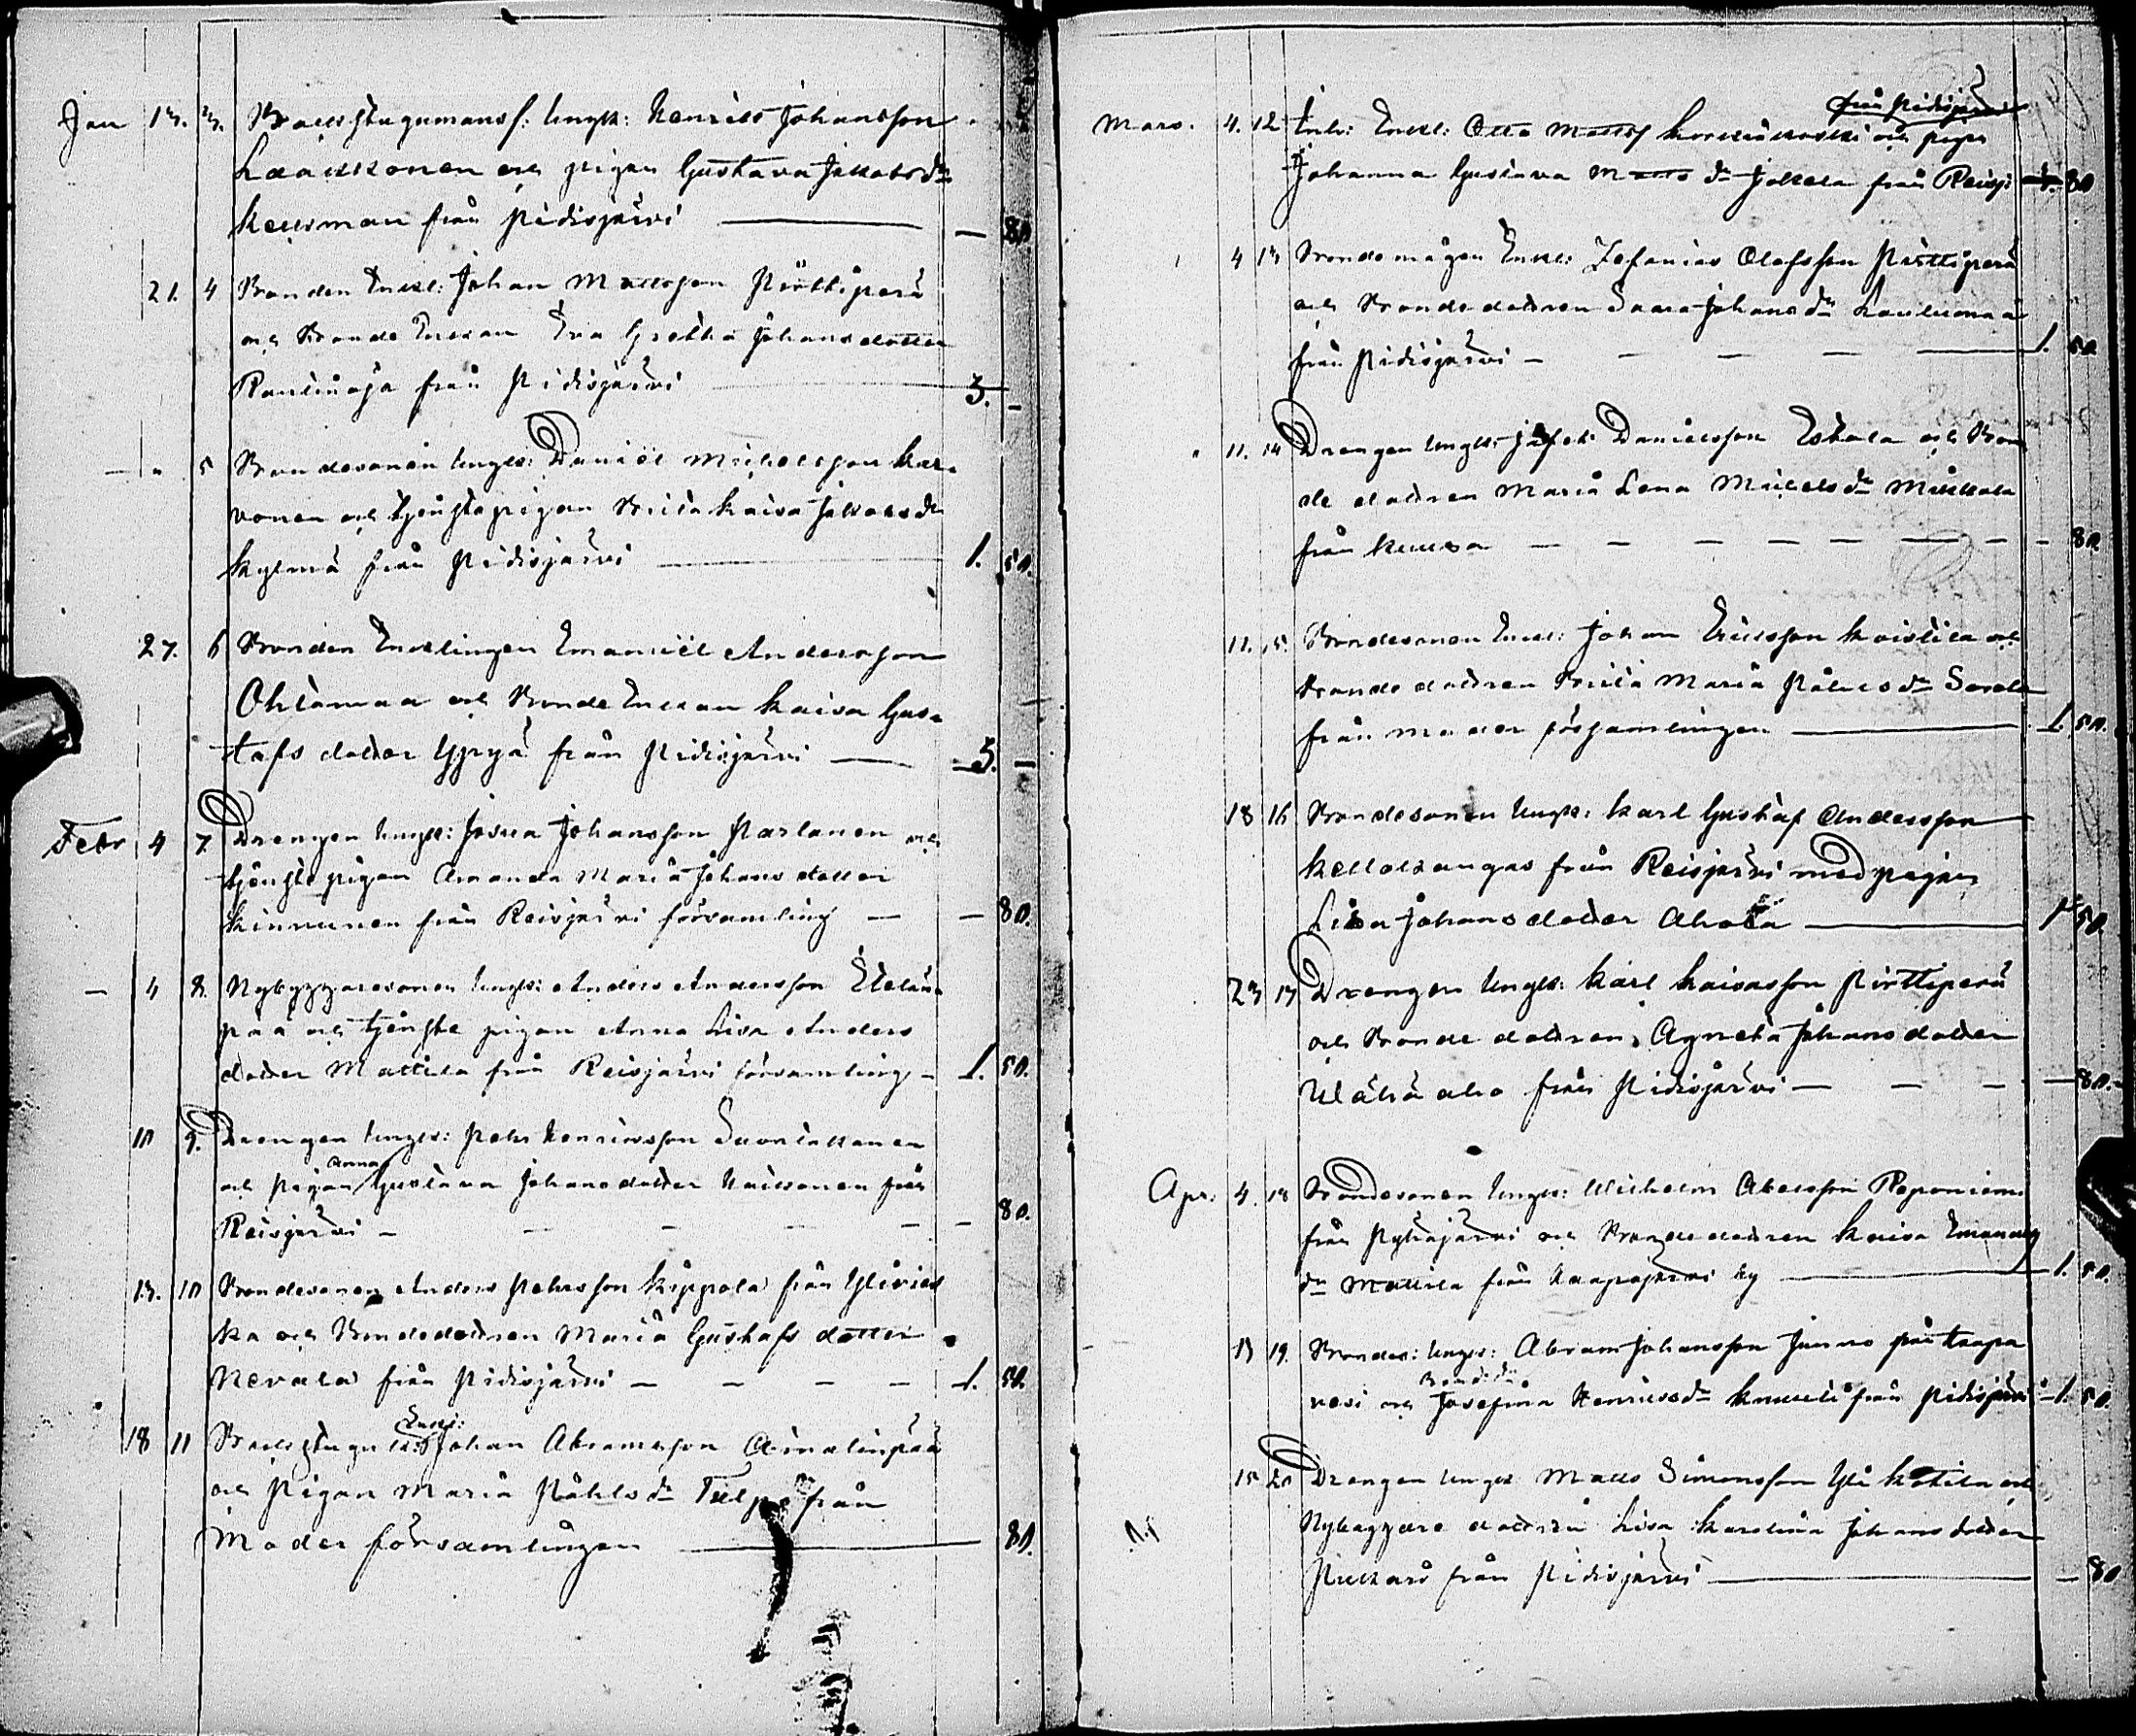 Jan 13. 3. Backstugumans s: Ungk: Henrick Johansson
Laaukkonen och pigan Gustava Jakobsdr
Keusman från Pidisjärvi — — 80
21. 4 Bonden Enkl: Johan Mattsson Pirttiperä
och Bonde Enkan Eva Gretha Johansdotter
Rautinoja från Pidisjärvi 3. —
— " 5 Bondesonen Ungk: Daniel Michelsson Kar-
vonen och tjenstepigan Brita Kaisa Jakobsdr
Kylmä från Pidisjärvi 1. 50.
27. 6 Bonden Enklingen Emanuel Andersson
Ohtamaa och Bonde Enkan Kaisa Gus-
tafs dotter Ypyä från Pidisjärvi — 3. —
Febr 4 7. Drengen Ungk: Josua Johansson Parlanen och
tjenste pigan Amanda Maria Johans dotter
Kinnunen från Reisjärvi församling — — 80.
— 4 8. Nybyggaresonen Ungk: Anders Andersson Etelän-
pää och tjenste pigan Anna Lisa Anders
dotter Mattila från Reisjärvi församling — 1. 50.
10 9. Drengen Ungk: Pehr Henriksson
och pigan Anna Gustava Johansdotter från
Reisjärvi — — — — — — 80.
13. 10 Bondesonen Anders Pehrsson Kippola från Ylivies
ka och Bondedottren Maria Gustafs dotter
Nevala från Pidisjärvi — — — — 1. 50.
18 11 Enkl: Johan Abramsson Ainalinpää
och Pigan Maria Påhls dr Tulpo från
Moder församlingen — 80.
Mars. 4. 12 Inh: Enkl: Otto Matts Korkiakoski och pigan från Pidisjärvi
Johanna Gustava Matts dr Jokela från Reisj: 1. 80
4 13 Bondemågen Enkl: Zefanias Olofsson Pirttiperä
och Bondedottren Saara Johans dr
från Pidisjärvi — — — — 1. 50
" 11. 14 Drengen Ungk: Jafet Danielsson Eskola och Bon
de dottren Maria Lena Michels dr Mickola
från — — — — — — — 80
11. 15. Bondesonen Enkl: Johan Ericsson Koistila och
Bonde dottren Brita Maria Påhls dr Sorola
från moder församlingen — 1. 50.
18 16 Bondesonen Ungk: Karl Gustaf Andersson
Kellokangas från Reisjärvi med pigan
Lisa Johans dotter Ahola — 1. 50.
23 17 Drengen Ungk: Karl Kaisasson Pirttiperä
och Bonde dottren, Agneta Johans dotter
Wähä aho från Pidisjärvi — — — — 80.
Apr: 4. 18 Bondesonen Ungk: Wilhelm Abelsson Reponiemi
från Pyhäjärvi och Bondedottren Kaisa Emanuels
dr Mattila från Haapajärvi by — 1. 50.
13 19. Bondes: Ungk: Abram Johansson Junno från Haapa
vesi och Bondedr Josefina Henriks dr från Pidisjärvi — 1. 50.
15 20 Drengen Ungk Matts Simonsson Yli Kotila och
Nybyggare dottren Lisa Karolina Johans dotter
från Pidisjärvi — — 80